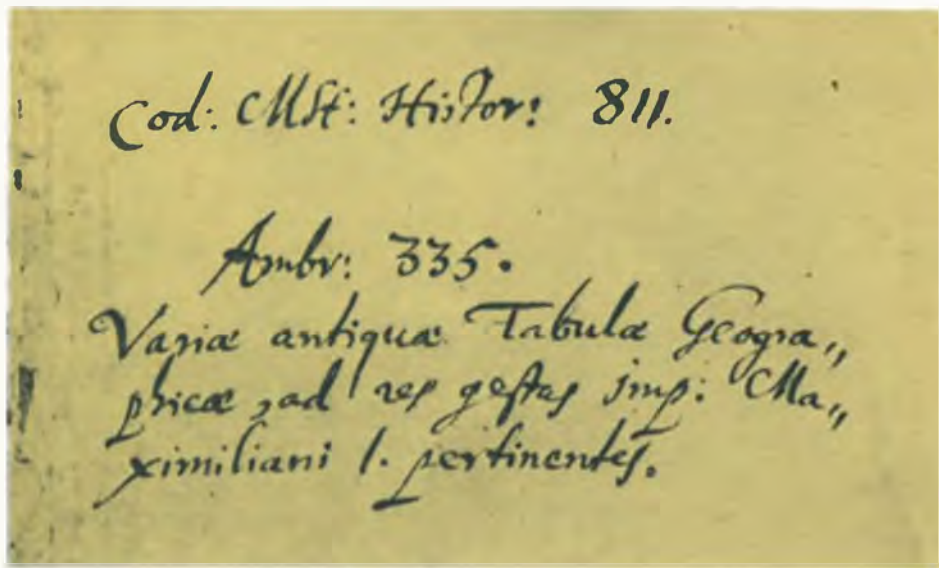 Cod: MSt: Histor: 811.
Ambr: 335.
Variæ antiquæ Tabulæ Geogra„
phicæ, ad res gestas imp: Ma„
ximiliani I. pertinentes.